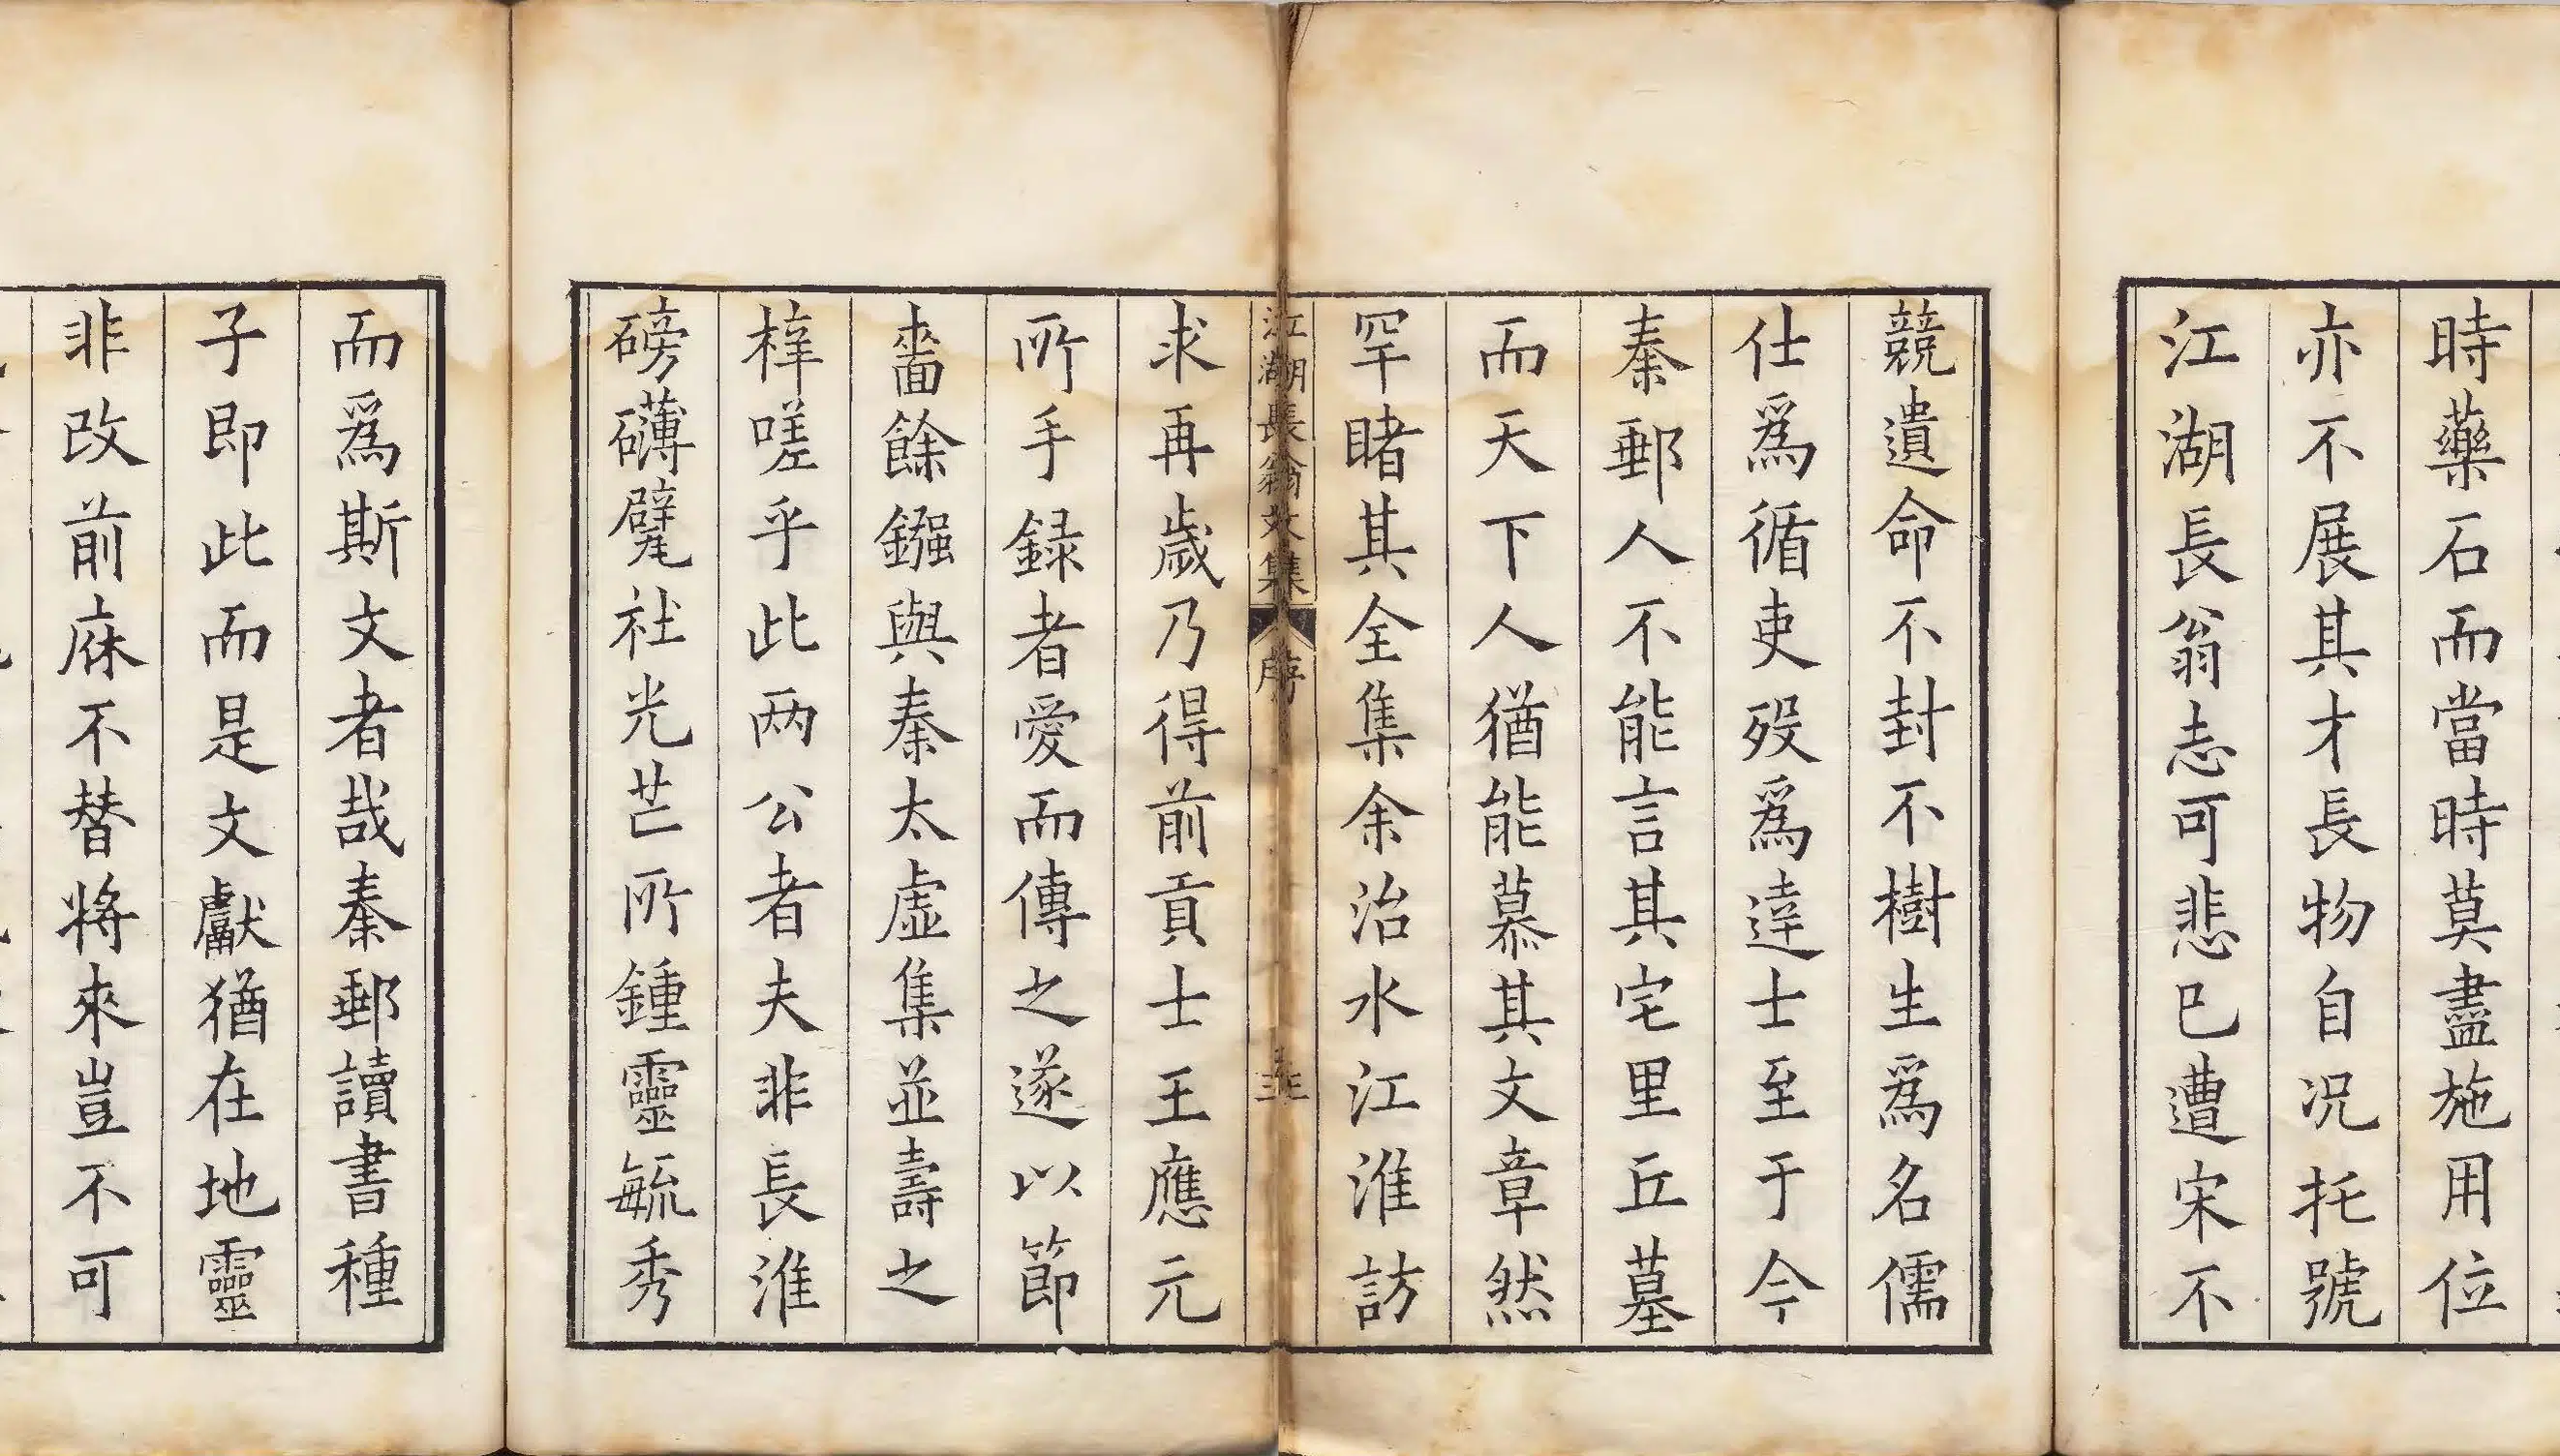 時藥石而當時莫盡施用位
亦不展其才長物自况托號
江湖長翁志可悲巳遭宋不
競遺命不封不樹生爲名儒
仕爲循吏歿爲達士至于今
秦郵人不能言其宅里丘墓
而天下人猶能慕其文章然
罕睹其全集余治水江淮訪
江湖長翁文集
序
求再歲乃得前貢士王應元
所手録者愛而傳之遂以節
嗇餘鏹與秦太虛集並壽之
梓嗟乎此两公者夫非長淮
磅礴甓社光芒所鍾靈毓秀
而爲斯文者哉秦郵讀書種
子即此而是文獻猶在地靈
非改前庥不替將來豈不可